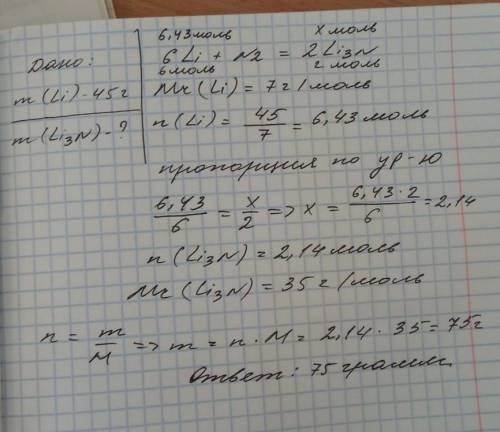 Дано:
m (Li) - 45г
m (Li3N) - ?
6,43 моль x моль
6Li + N2 = 2Li3N
6 моль 2 моль
Mr (Li) = 7г/моль
n (Li) = 45/7 = 6,43 моль
пропорция по ур-ю
6,43/6 = x/2 => x = 6,43·2/6 = 2,14
n (Li3N) = 2,14 моль
Mr (Li3N) = 35г/моль
n = m/M => m = n·M = 2,14·35 = 75г
Ответ: 75 грамм.